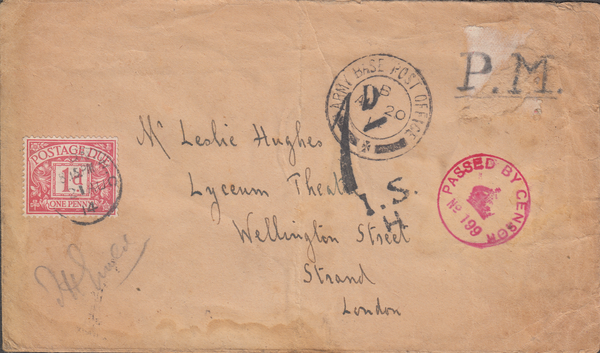 P.M.
ARMY BASE POST OFFICE
B
20
1D
Mr Leslie Hughes
Lyceum Theat
Wellington Street
Strand
London
I.S.
H
PASSED BY CENSOR
No 199
POSTAGE DUE
1D
ONE PENNY
14